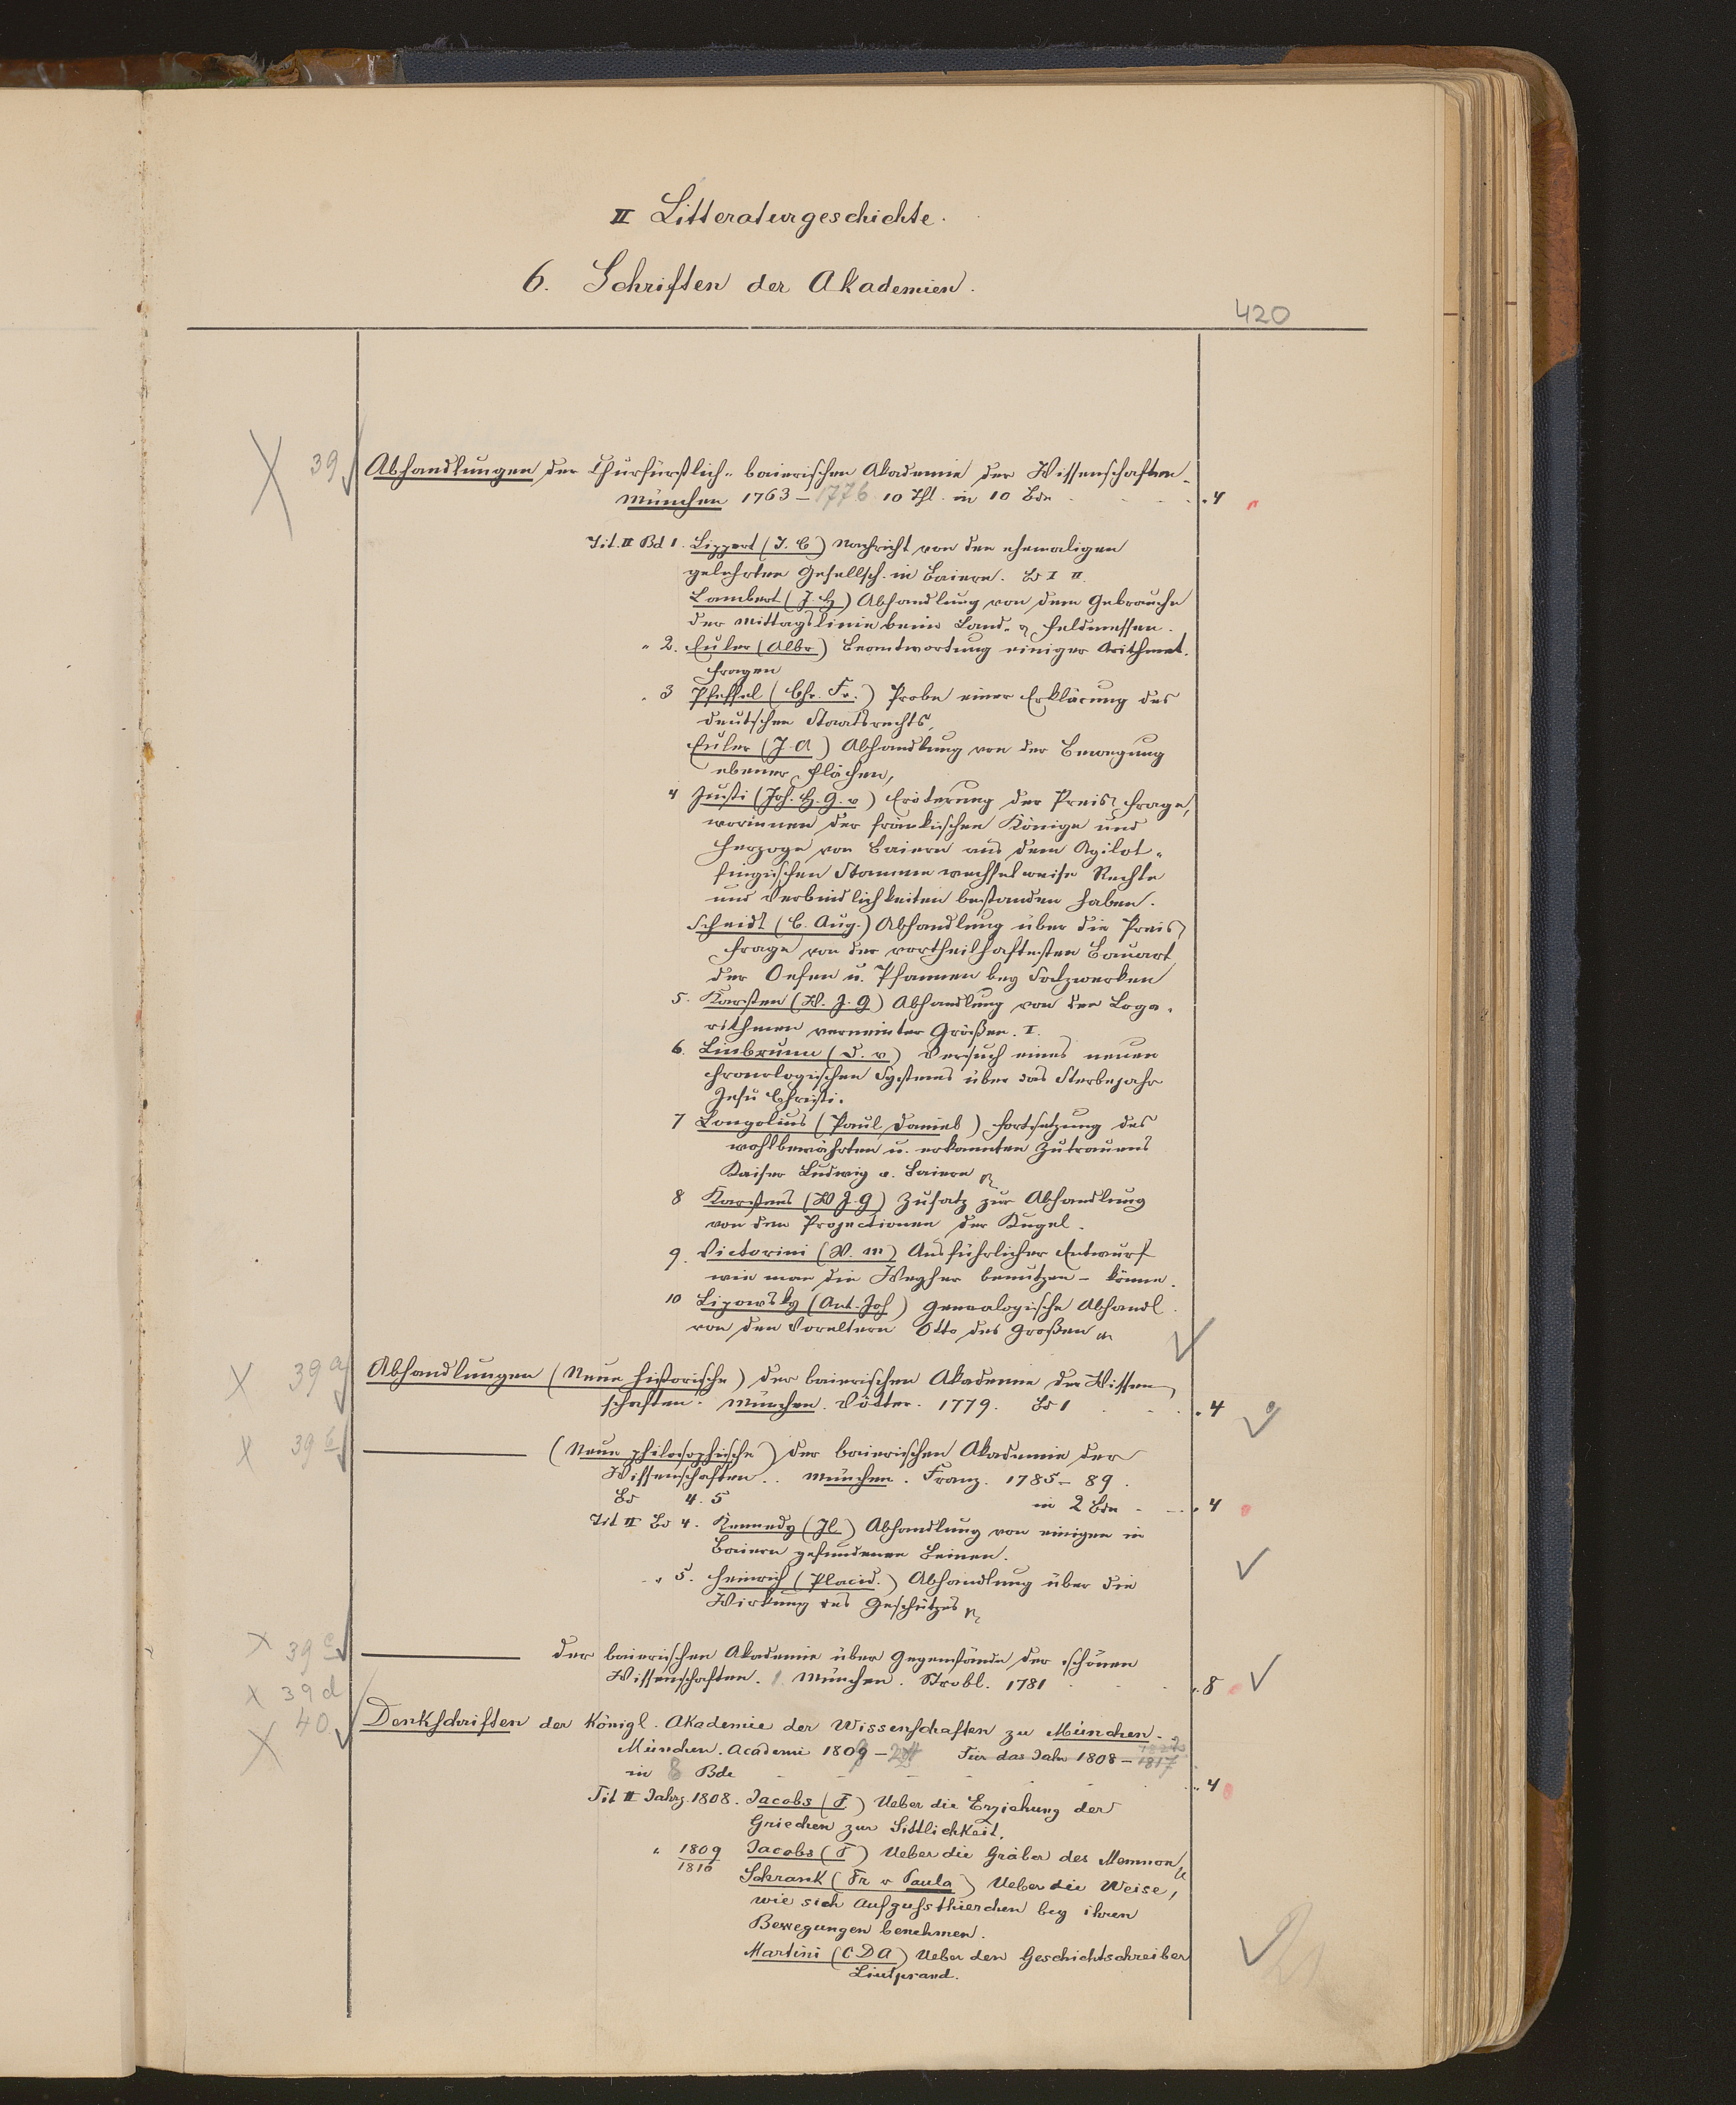 II Litteraturgeschichte.
6. Schriften der Akademien.
420
39 Abhandlungen der Churfürstlich-baierischen Akademie der Wissenschaften.
München 1763–1776 10 Thl. in 10 Bdn .4
Tit. II Bd 1. Lippert (J. C) Nachricht von den ehemaligen
gelehrten Gesellsch. in Baiern. Bd I II.
Lambert (J. H) Abhandlung von dem Gebrauche
der Mittagslinie beim Land- & Feldmessen.
" 2. Euler (Albr) Beantwortung einiger Arithmet.
Fragen
" 3 Pfeffel (Chr. Fr.) Probe einer Erklärung des
deutschen Staatsrechts.
Euler (J. A) Abhandlung von der Bewegung
ebener Flächen,
4 Justi (Joh. H. G. v) Erörterung der Preis Frage,
worinnen der fränkischen Könige und
Herzoge von Baiern aus dem Agilol-
fingischen Stamme wechselweise Rechte
und Verbindlichkeiten bestanden haben.
Scheidt (C. Aug.) Abhandlung über die Preis
Frage von der vortheilhaftesten Bauart
der Oefen u. Pfannen bey Salzwerken
5. Karsten (W. J. G) Abhandlung von den Loga-
rithmen verneinter Größen. I.
6. Linbrunn (D. v) Versuch eines neuen
chronologischen Systems über das Sterbejahr
Jesu Christi.
7 Longolius (Paul Daniel) Fortsetzung des
wohlbewährten u. erkannten Zutrauens
Kaiser Ludwig v. Baiern
8 Karstens (W J. G) Zusatz zur Abhandlung
von den Projectionen der Kugel.
9. Victorini (W. M) Ausführlicher Entwurf
wie man die Weyher benutzen – könne.
10 Lipowsky (Ant. Joh) Genealogische Abhandl.
von den Voreltern Otto des Großen
39 a Abhandlungen (Neue historische) der baierischen Akademie der Wissen
schaften. München. Vötter. 1779. Bd 1 .4
39 b (Neue philosophische) der baierischen Akademie der
Wissenschaften.. München. Franz. 1785–89.
Bd 4. 5 in 2 Bdn .4
Tit II Bd 4. Kennedy (Jl.) Abhandlung von einigen in
Baiern gefundenen Beinen.
" 5. Heinrich (Placid.) Abhandlung über die
Wirkung des Geschützes
39 c der baierischen Akademie über Gegenstände der schönen
Wissenschaften. 1. München. Strobl. 1781 .8
39 d
40 Denkschriften der Königl. Akademie der Wissenschaften zu München.
München. Academi 1809 – Für das Jahr 1808 – 1817
in 8 Bde .4
Tit II Jahrg. 1808. Jacobs (F) Ueber die Erziehung der
Griechen zur Sittlichkeit.
" 1809 Jacobs (F) Ueber die Gräber des Memnon
1810
Schrank (Fr v Paula) Ueber die Weise,
wie sich Aufgufsthierchen bey ihren
Bewegungen benehmen.
Martini (C D A) Ueber den Geschichtschreiber
Liutprand.